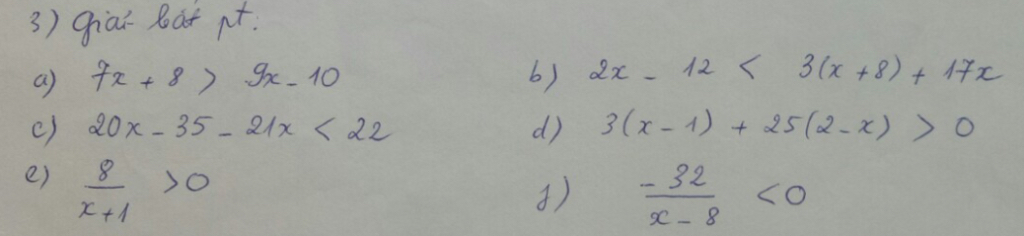 3) Giải bất pt:
a) 7x + 8 > 9x - 10 b) 2x - 12 < 3(x + 8) + 17x
c) 20x - 35 - 21x < 22 d) 3(x - 1) + 25(2 - x) > 0
e) 8/(x+1) > 0 f) -32/(x - 8) < 0